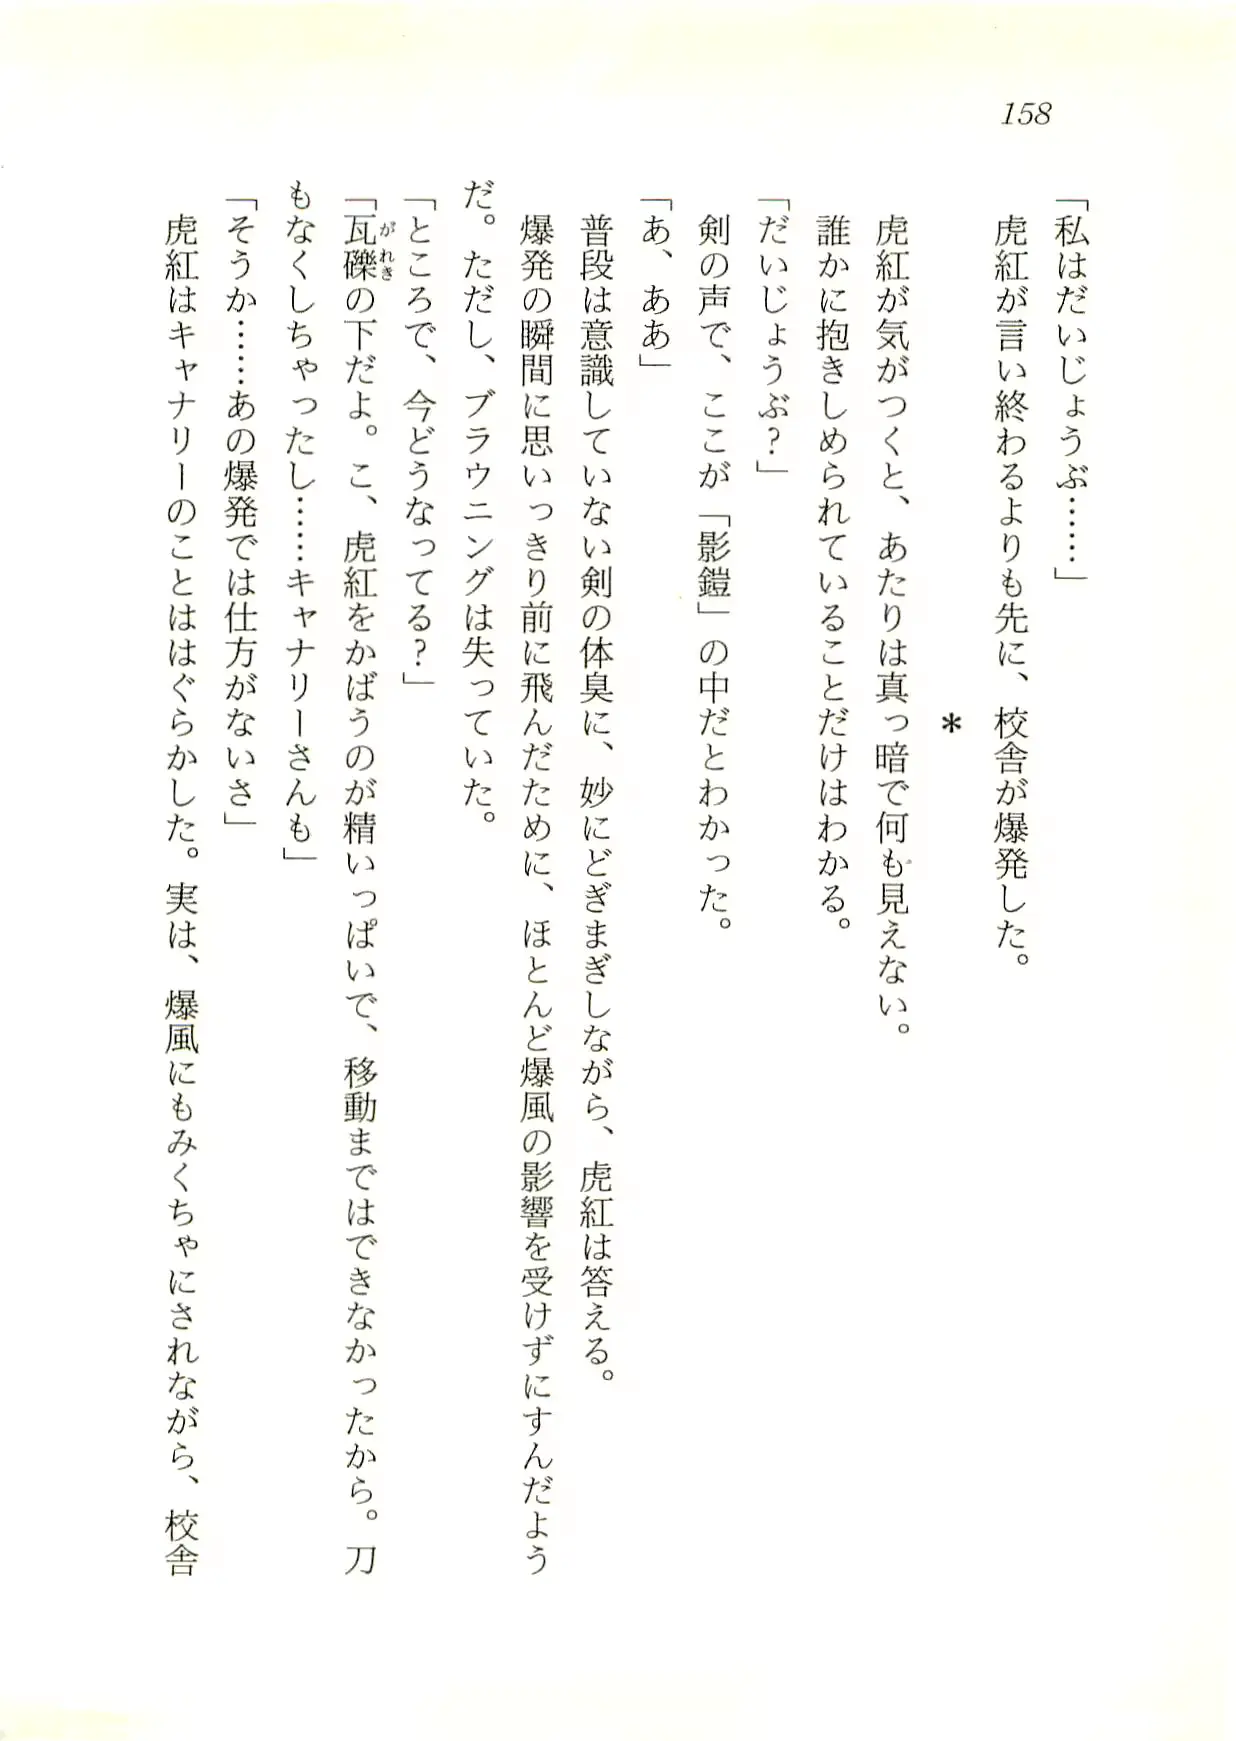 158
「私はだいじょうぶ……」
虎紅が言い終わるよりも先に、校舎が爆発した。
*
虎紅が気がつくと、あたりは真っ暗で何も見えない。
誰かに抱きしめられていることだけはわかる。
「だいじょうぶ？」
剣の声で、ここが「影鎧」の中だとわかった。
「あ、ああ」
普段は意識していない剣の体臭に、妙にどぎまぎしながら、虎紅は答える。
爆発の瞬間に思いっきり前に飛んだために、ほとんど爆風の影響を受けずにすんだよう
だ。ただし、ブラウニングは失っていた。
「ところで、今どうなってる？」
「瓦礫の下だよ。こ、虎紅をかばうのが精いっぱいで、移動まではできなかったから。刀
がれき
もなくしちゃったし……キャナリーさんも」
「そうか……あの爆発では仕方がないさ」
虎紅はキャナリーのことははぐらかした。実は、爆風にもみくちゃにされながら、校舎